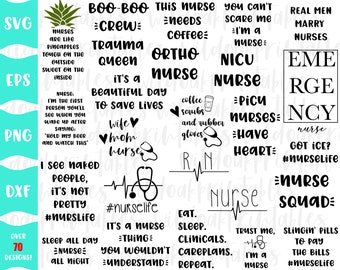 SVG
EPS
PNG
DXF
OVER
70
DESIGNS!
NURSES
ARE LIKE
PINEAPPLES
TOUGH ON THE
OUTSIDE
SWEET ON THE
INSIDE
NURSE:
I'M THE FIRST
PERSON YOU'LL
SEE WHEN YOU
WAKE UP AFTER
SAYING:
"HOLD MY BEER
AND WATCH THIS"
I SEE NAKED
PEOPLE,
IT'S NOT
PRETTY
#NURSLIFE
SLEEP ALL DAY
NURSE
ALL NIGHT
BOO-BOO
CREW
TRAUMA
QUEEN
IT'S A
BEAUTIFUL DAY
TO SAVE LIVES
wife
mom
nurse
#NURSELIFE
IT'S A NURSE
THING
YOU WOULDN'T
UNDERSTAND
THIS NURSE
NEEDS
COFFEE
ORTHO
NURSE
coffee
scrubs
and rubber
gloves
RN
NURSE
EAT.
SLEEP.
CLINICALS.
CAREPLANS.
REPEAT.
YOU CAN'T
SCARE ME
I'M A
NICU
NURSE
PICU
NURSES
HAVE
HEART
TRUST ME,
I'M A
NURSE
REAL MEN
MARRY
NURSES
EME
RGE
NCY
nurse
GOT ICE?
#NURSELIFE
NURSE
SQUAD
SLINGIN' PILLS
TO PAY
THE BILLS
#NURSELIFE